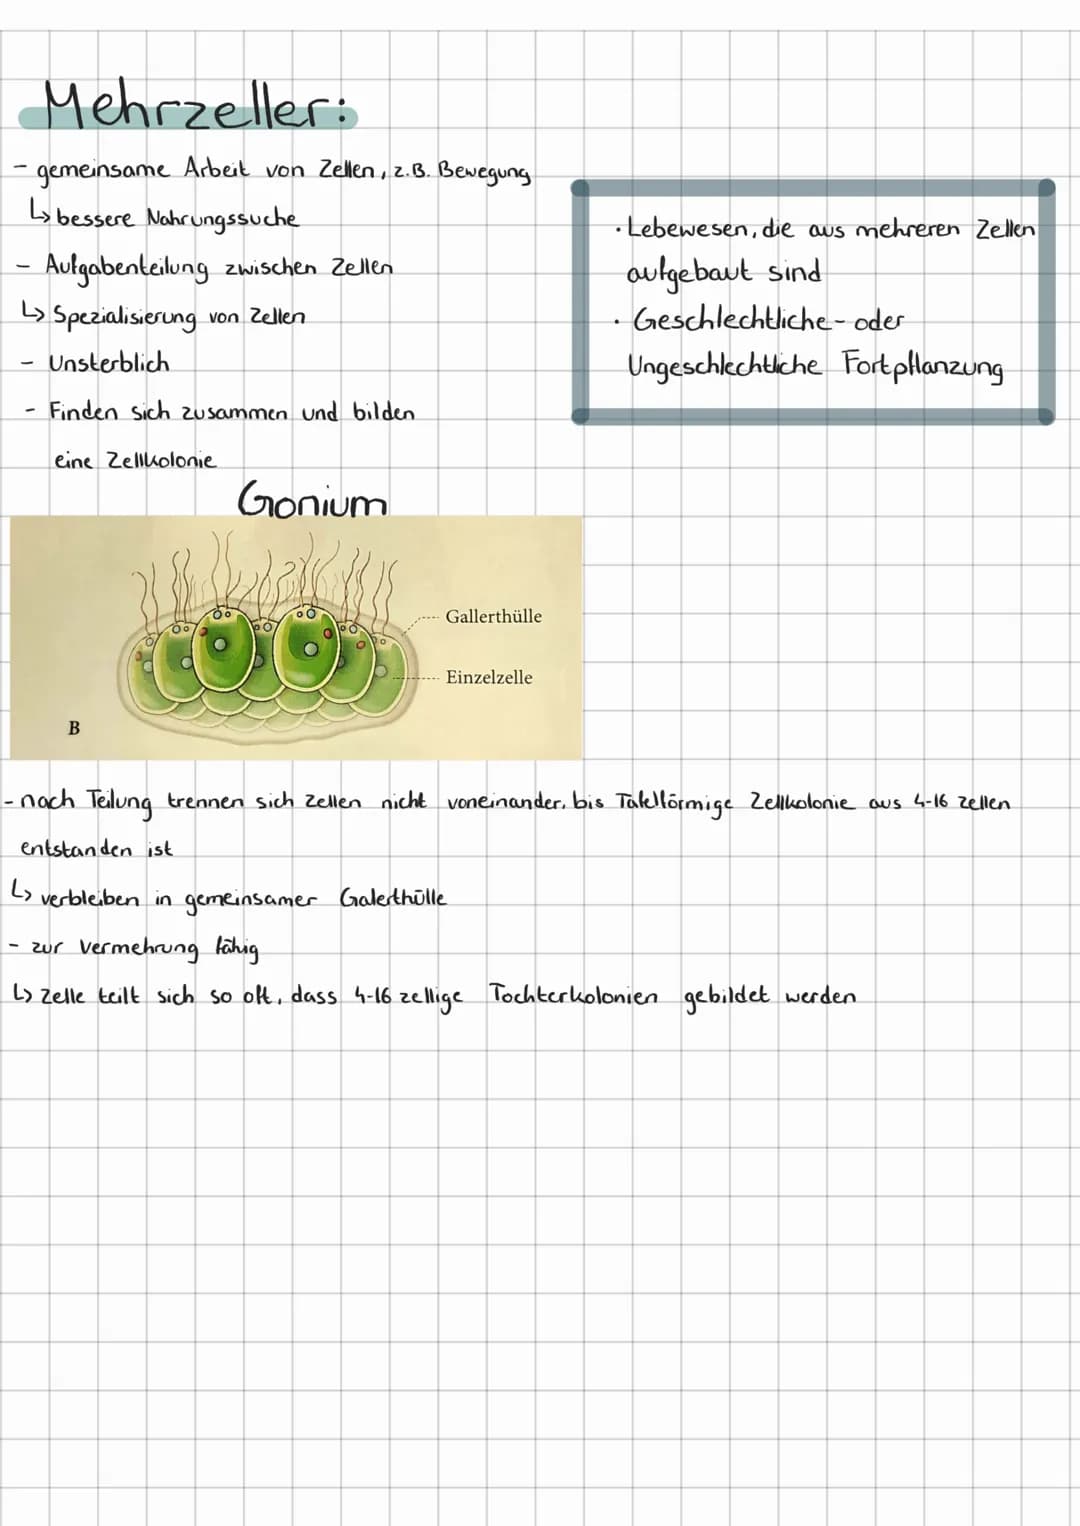 Mehrzeller:
- gemeinsame Arbeit von Zellen, z.B. Bewegung
↳ bessere Nahrungssuche
- Aufgabenteilung zwischen Zellen
↳ Spezialisierung von Zellen
- Unsterblich
- Finden sich zusammen und bilden
eine Zellkolonie
· Lebewesen, die aus mehreren Zellen
aufgebaut sind
· Geschlechtliche- oder
Ungeschlechtliche Fortpflanzung
Gonium
Gallerthülle
Einzelzelle
B
- nach Teilung trennen sich Zellen nicht voneinander, bis Tafelförmige Zellkolonie aus 4-16 Zellen
entstanden ist
↳ verbleiben in gemeinsamer Galerthülle
- zur Vermehrung fähig
↳ Zelle teilt sich so oft, dass 4-16 zellige Tochterkolonien gebildet werden